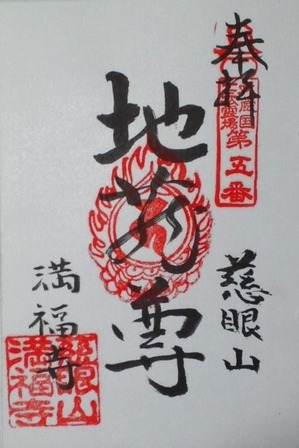 奉拝
第五番
地蔵尊
慈眼山
満福寺
慈眼山
満福寺